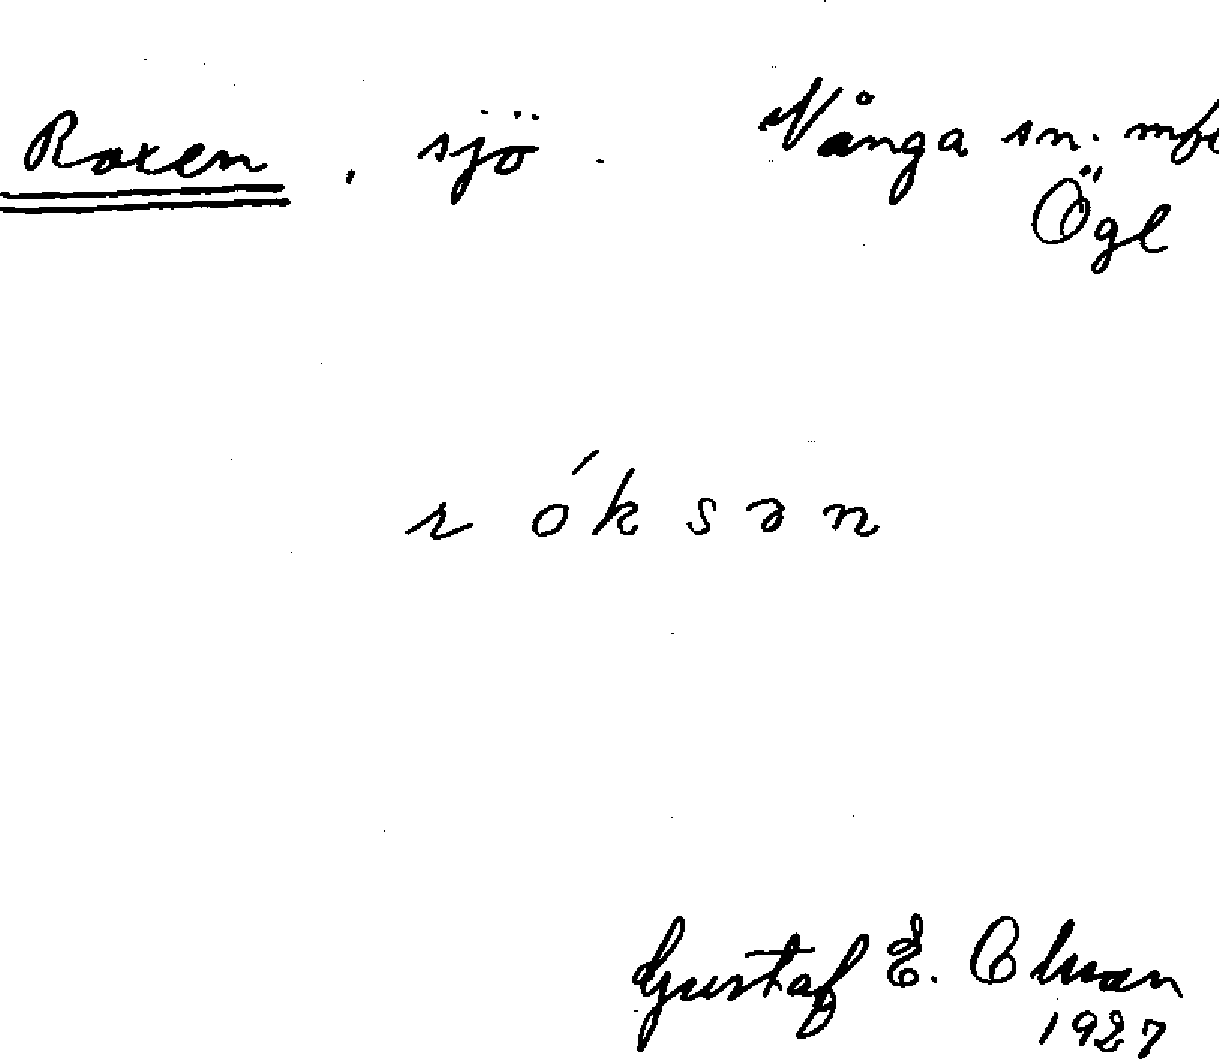 Roxen, sjö. Vånga sn. mfl
Ögl
róksən
Gustaf E. Olman
1927